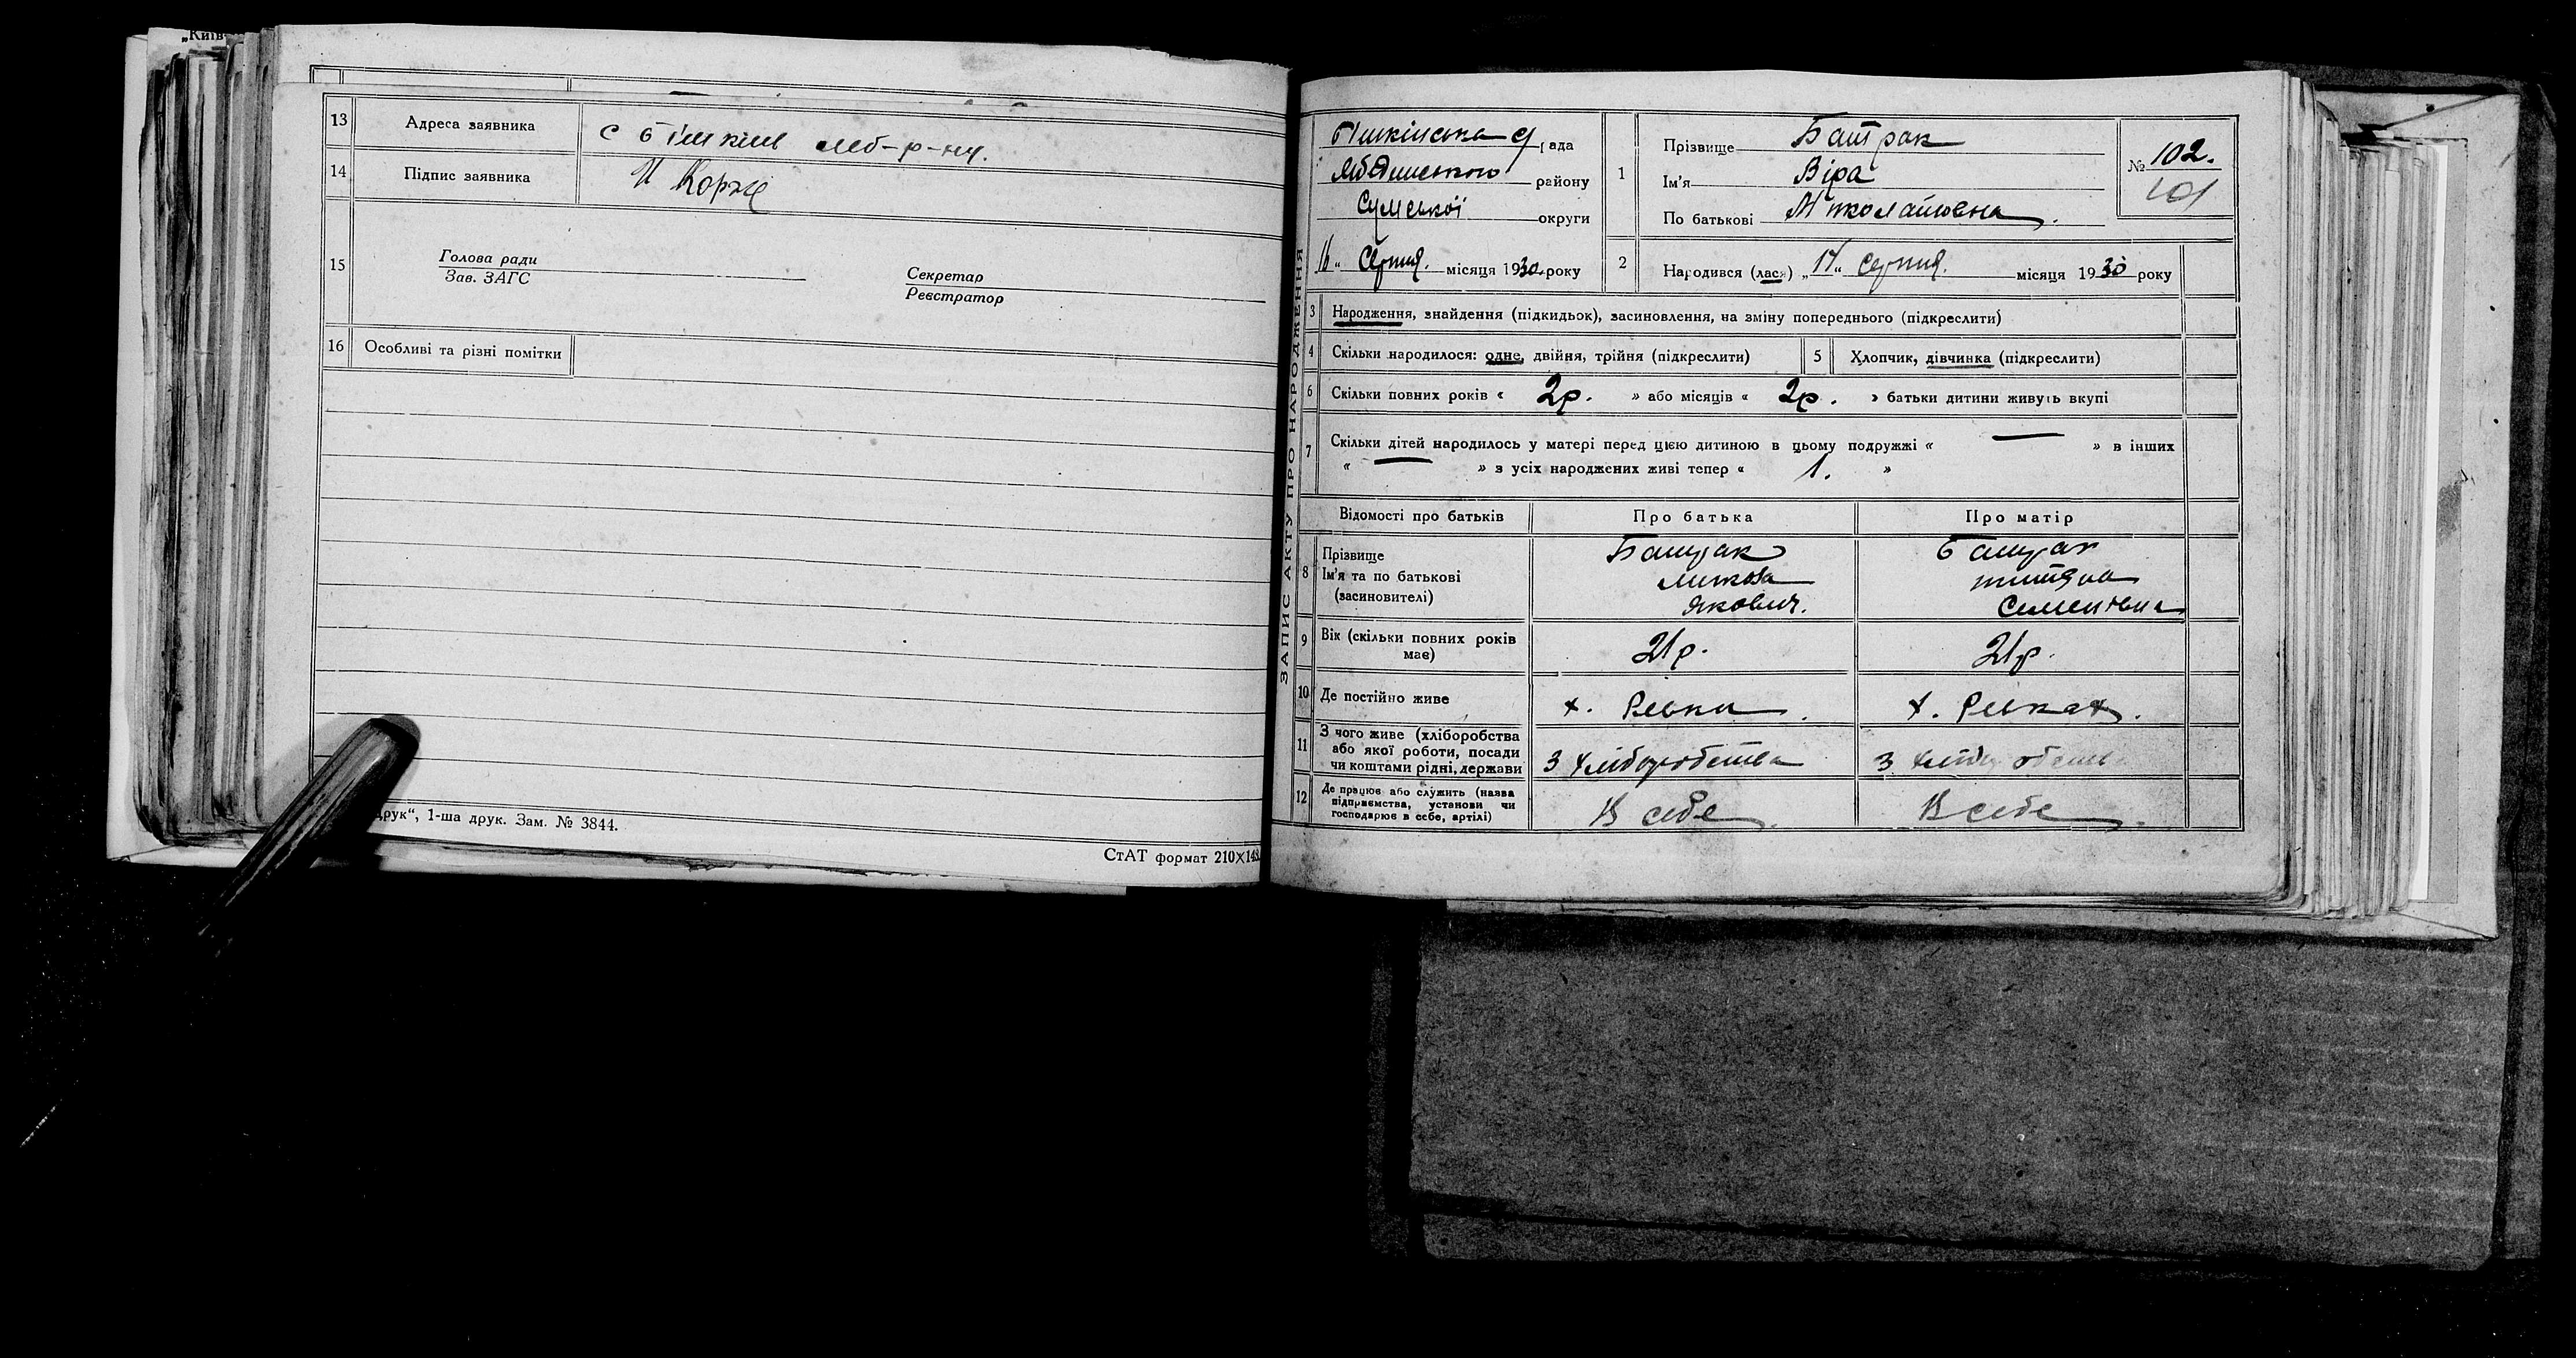 „Київ-
13 Адреса заявника с Бішкінь Леб-р-ну.
14 Підпис заявника И Корж
15 Голова ради
Зав. ЗАГС
Секретар
Реєстратор
16 Особливі та різні помітки
друк“, 1-ша друк. Зам. № 3844.
СтАТ формат 210×148
ЗАПИС АКТУ ПРО НАРОДЖЕННЯ
Бішкінська с/рада
Лебединського району
Сумської округи
16 „ Серпня. місяця 1930 року
1 Прізвище Батрак
Ім'я Віра
По батькові Миколаївна.
№ 102.
101
2 Народився (лася) „ 14 “ серпня. місяця 1930 року
3 Народження, знайдення (підкидьок), засиновлення, на зміну попереднього (підкреслити)
4 Скільки народилося: одне, двійня, трійня (підкреслити) 5 Хлопчик, дівчинка (підкреслити)
6 Скільки повних років « 2р. » або місяців « 2р. » батьки дитини живуть вкупі
7 Скільки дітей народилось у матері перед цією дитиною в цьому подружжі « — » в інших
« — » з усіх народжених живі тепер « 1. »
Відомості про батьків Про батька Про матір
8 Прізвище Батрак Батрак
Ім'я та по батькові Микола Титяна
(засиновителі) Якович. Семенівна
9 Вік (скільки повних років має) 21р. 21р.
10 Де постійно живе х. х.
11 З чого живе (хліборобства
або якої роботи, посади
чи коштами рідні, держави З хліборобства З хліборобства
12 Де працює або служить (назва
підприємства, установи чи
господарює в себе, артілі) В себе. В себе.